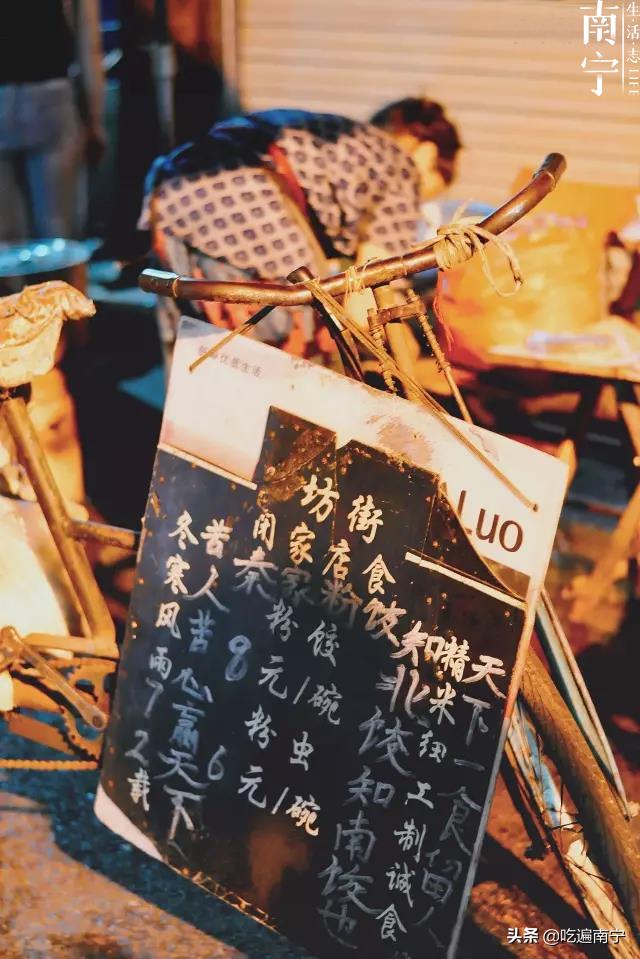 南宁
生·活·志 LIFE
Luo
天下一食留人
精米细工制诚食
知北饺知南饺也
街食
坊家店
秦家粉饺
粉饺
8元/碗
粉虫
6元/碗
苦人苦心赢天下
冬寒风雨72载
头条 @吃遍南宁